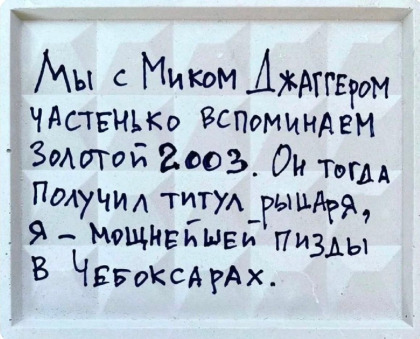 Мы с Миком Джаггером
частенько вспоминаем
золотой 2003. Он тогда
получил титул рыцаря,
я – мощнейшей пизды
в Чебоксарах.